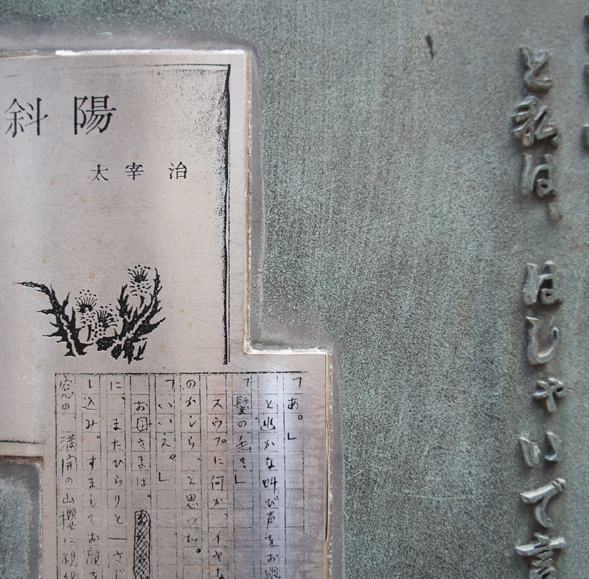 と私は、はしゃいで言
斜陽
太宰治
「あ。」
と幽かな叫び声をお
「髪の毛?」
スウプに何か、イヤな
のかしら、と思った。
「いいえ。」
お母さまは、
に、またひらりと一さじ
し込み、すましてお顔を
窓の、満開の山櫻に視